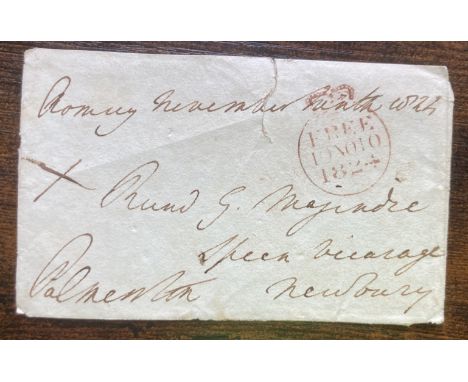 Romsey November ninth 1824
FREE
10 NO 10
1824
X Revnd G. Majendie
Speen Vicarage
Palmerston Newbury